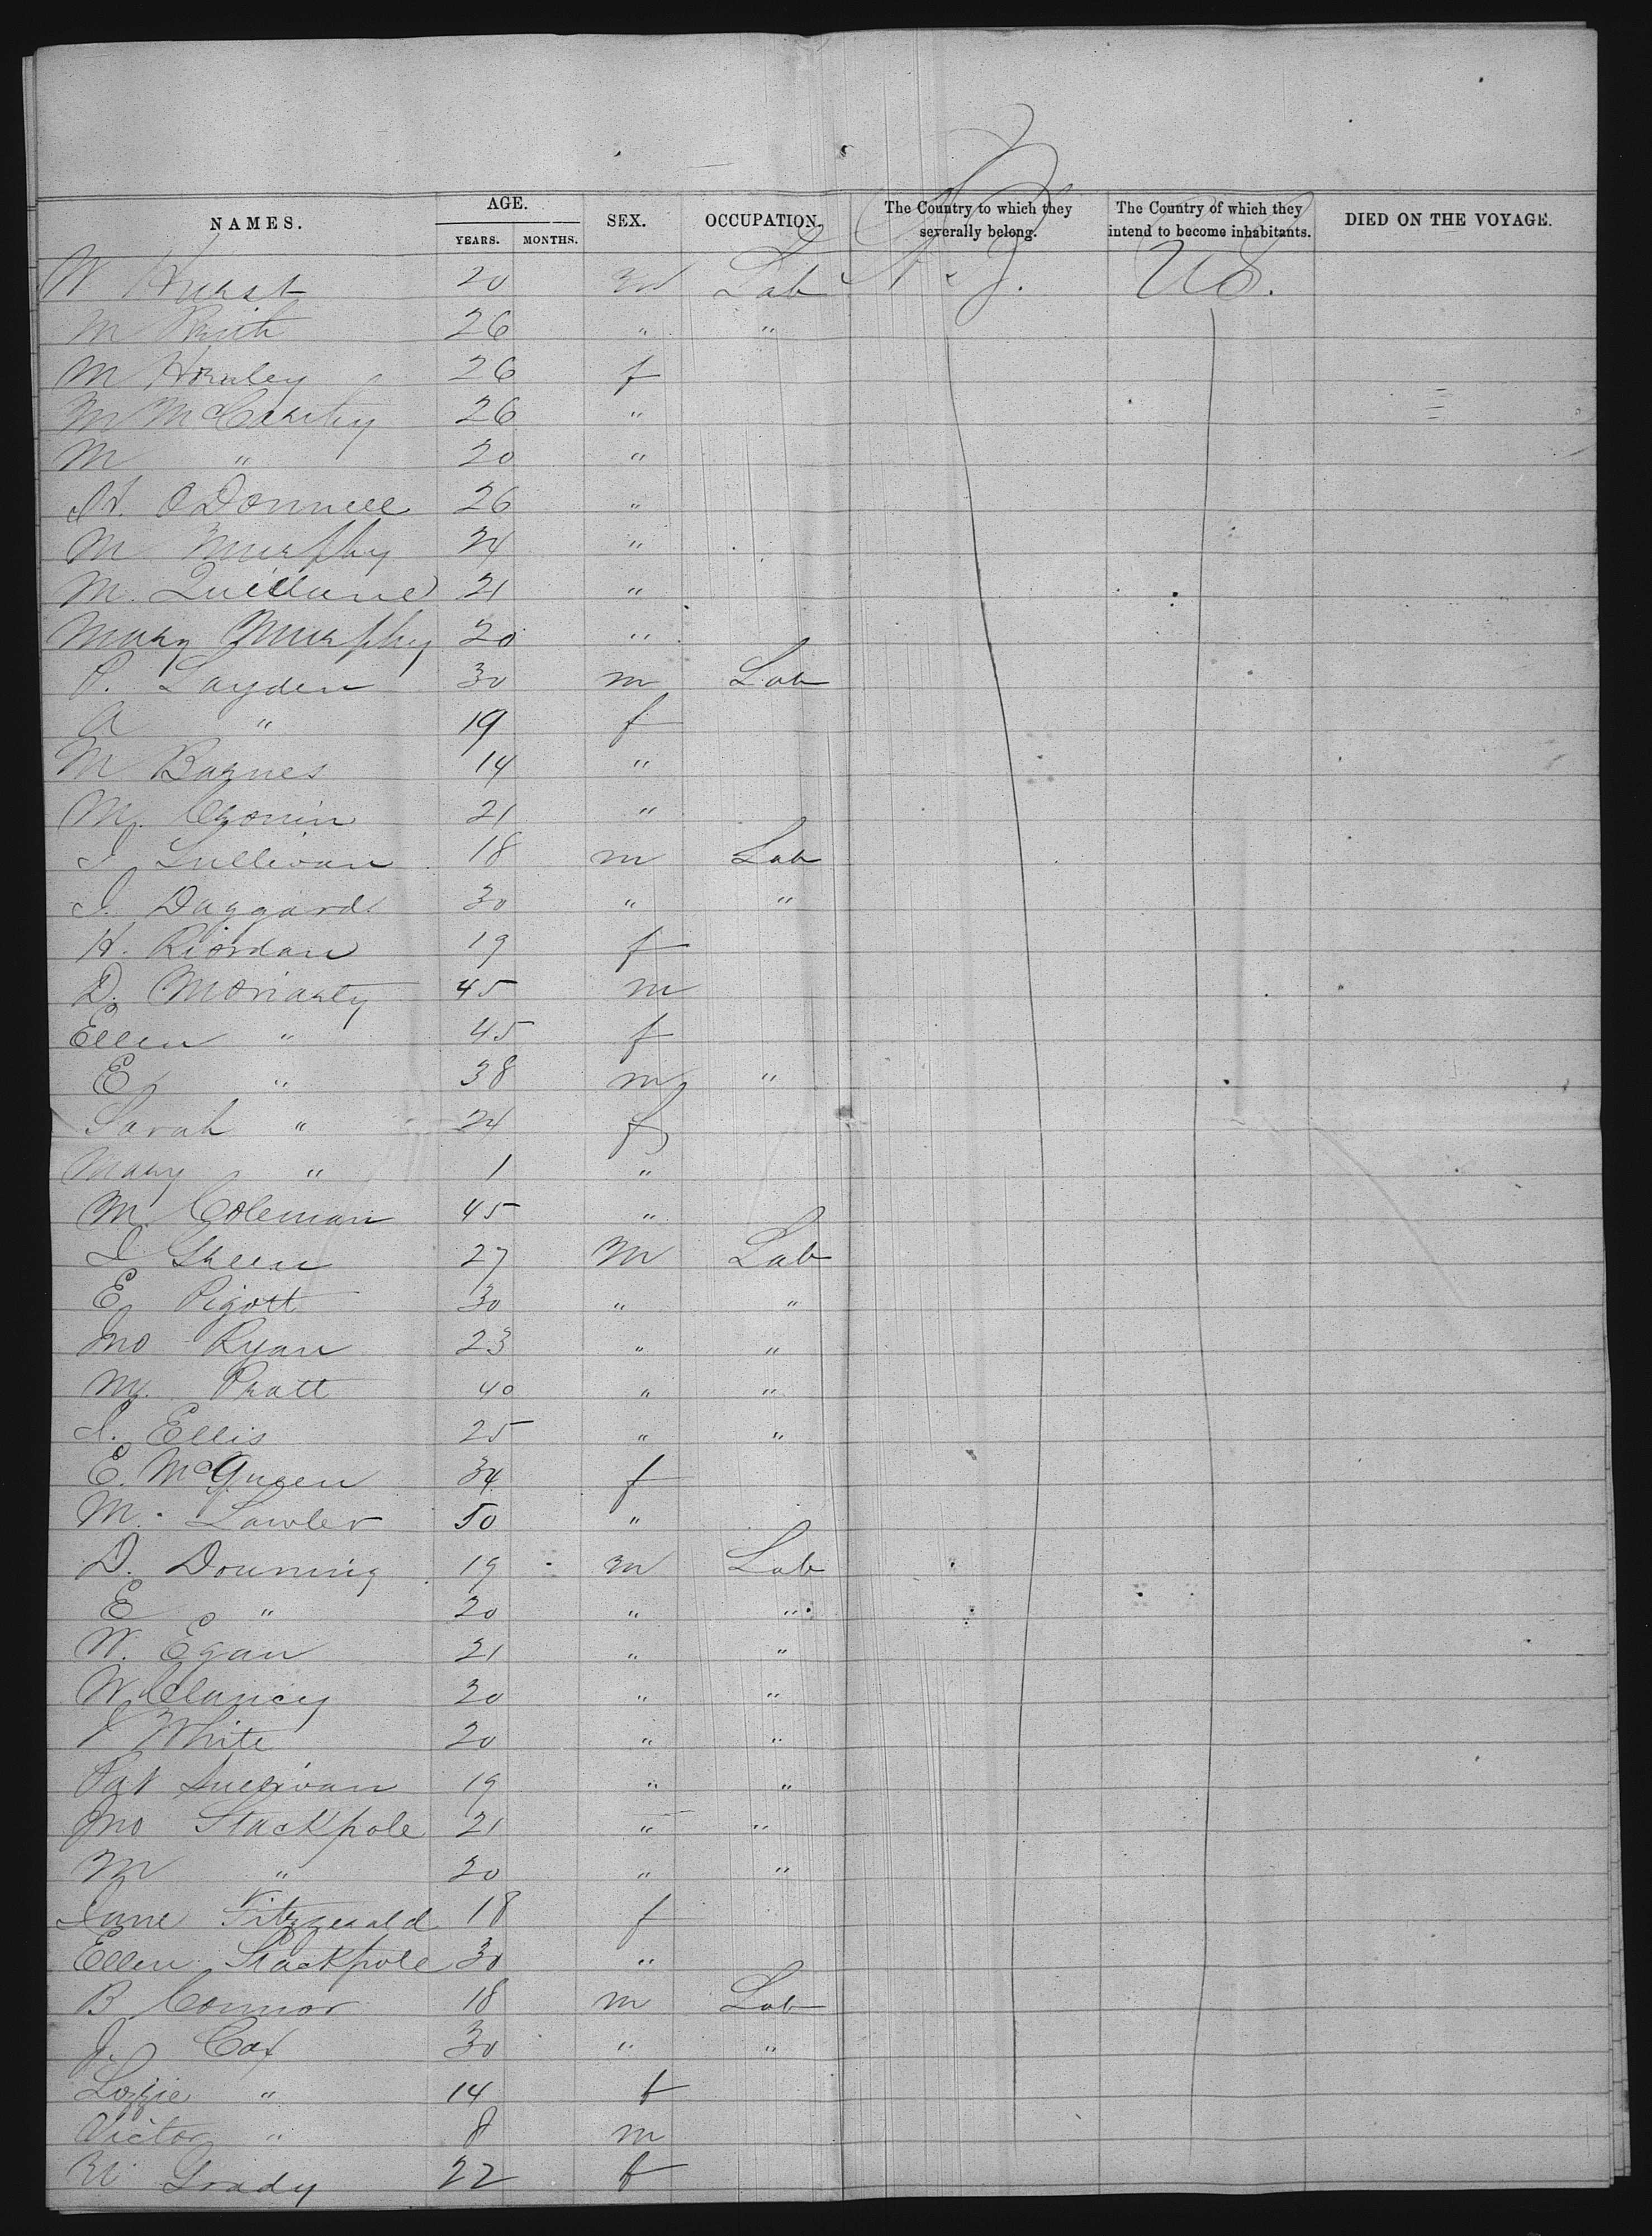 NAMES. AGE. YEARS. MONTHS. SEX. OCCUPATION. The Country to which they severally belong. The Country of which they intend to become inhabitants. DIED ON THE VOYAGE.
W Hurst 20 m Lab N. Y. US.
M 26 " "
M Hornley 26 f
M McCarthy 26 "
M " 20 "
H. O'Donnell 26 "
M Murphy 24 "
M. Quillane 21 "
Mary Murphy 20 "
P. Layden 30 m Lab
A " 19 f
M Barnes 14 "
M. Cronin 21 "
J Sullivan 18 m Lab
J. Daggard 30 " "
H. Riordan 19 f
D. Moriarty 45 m
Ellen " 45 f
E " 38 m "
Sarah " 24 f
Mary " 1 "
M. Coleman 45 "
J. Skeen 27 M Lab
E Pigott 30 " "
Jno Ryan 23 " "
M. Pratt 40 " "
J. Ellis 25 " "
E. McQueen 34 f
M. Lawler 50 "
D. Downing 19 m Lab
E " 20 " "
W. Egan 21 " "
W Clancy 20 " "
J White 20 " "
Pat Sullivan 19 " "
Jno Stackpole 21 " "
M " 20 " "
Jane Fitzgerald 18 f
Ellen Stackpole 30 "
B Connor 18 m Lab
J. Cox 30 " "
Lizzie " 14 f
Victor " 8 m
M Grady 22 f